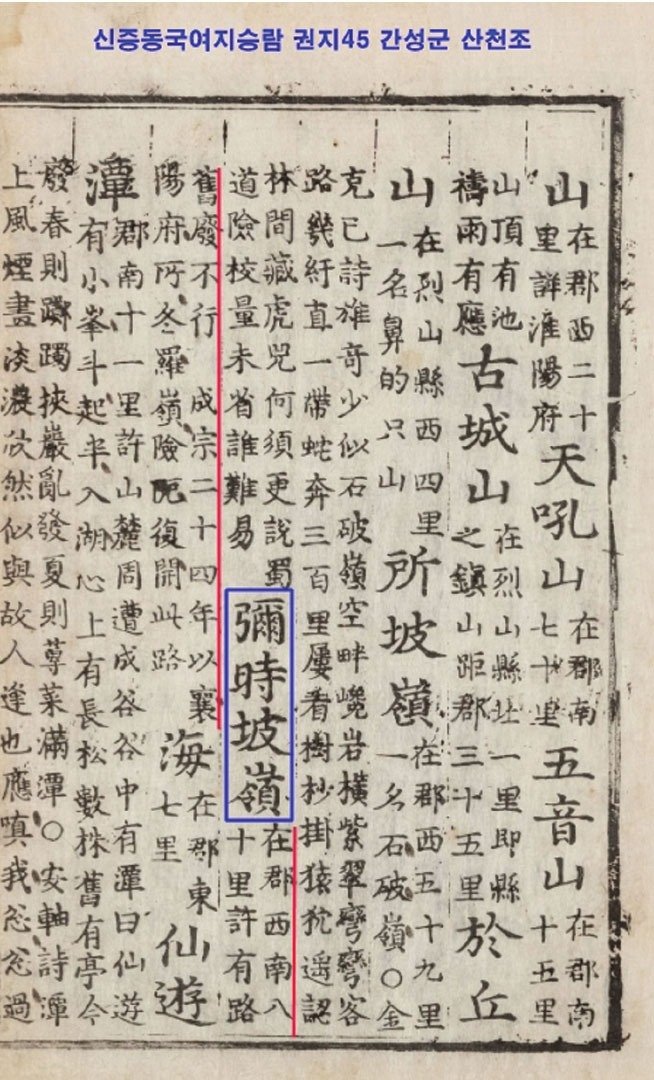 신증동국여지승람 권지45 간성군 산천조
山在郡西二十里詳淮陽府天吼山在郡南七十里五音山在郡南十五里
山頂有池禱雨有應古城山在烈山縣北一里即縣之鎭山距郡三十五里於丘
山在烈山縣西四里一名鼻的只山所坡嶺在郡西五十九里一名石破嶺○金
克己詩雄奇少似石破嶺空畔巉岩橫紫翠彎彎客
路幾紆直一帶蛇奔三百里屢看樹抄掛猿狖遥認
林間藏虎兕何須更說蜀道險校量未省誰難易彌時坡嶺在郡西南八十里許有路
舊廢不行 成宗二十四年以襄陽府所冬羅嶺險阨復開此路海在郡東七里仙遊
潭郡南十一里許山麓周遭成谷谷中有潭曰仙遊有小峯斗起半入湖心上有長松數株舊有亭今
廢春則躑躅挾巖亂發夏則蓴菜滿潭○安軸詩潭
上風煙晝淡濃依然似與故人逢也應嗔我怱怱過